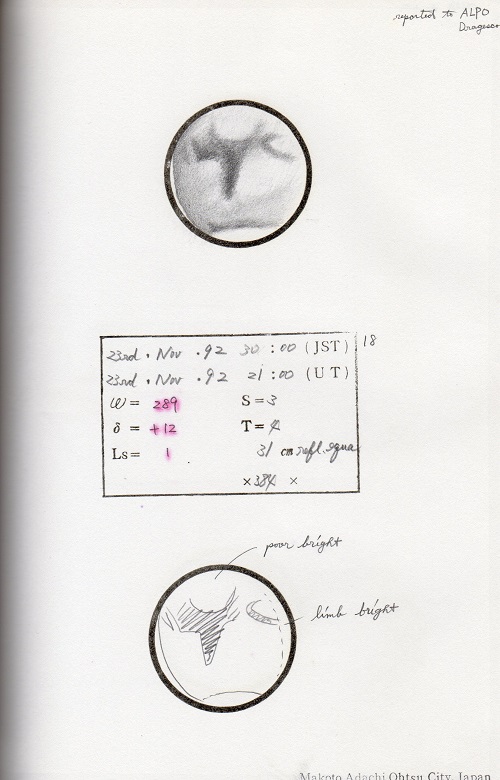 reported to ALPO
Dragesco
23rd , Nov . 92 30 : 00 (JST) 18
23rd , Nov . 92 21 : 00 (UT)
ω = 289 S = 3
δ = +12 T = 4
Ls = 1 31 cm refl. equa
×384 ×
poor bright
limb bright
Makoto Adachi Ohtsu City, Japan